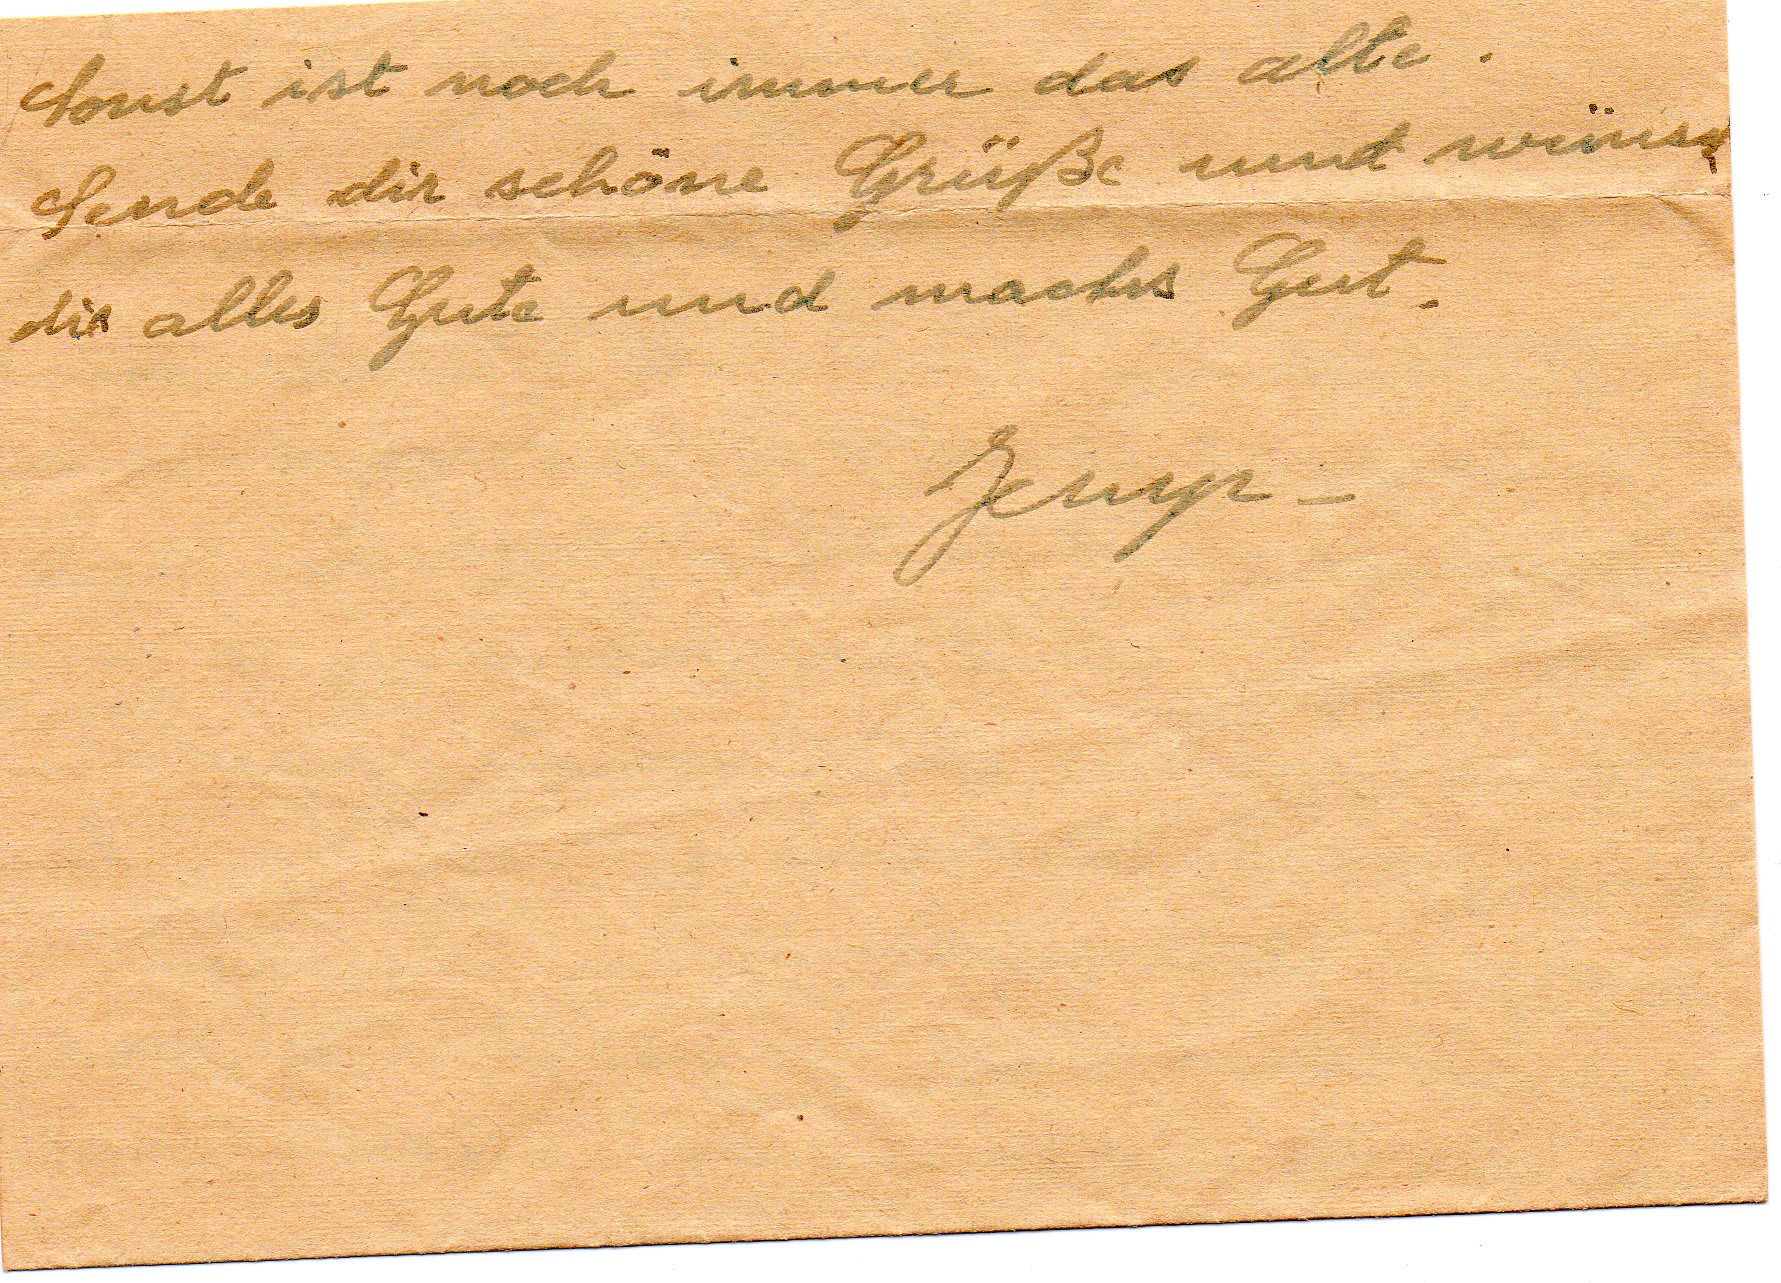 Sonst ist noch immer das alte.
Sende dir schöne Grüße und wünsch
dir alles Gute und machs Gut.